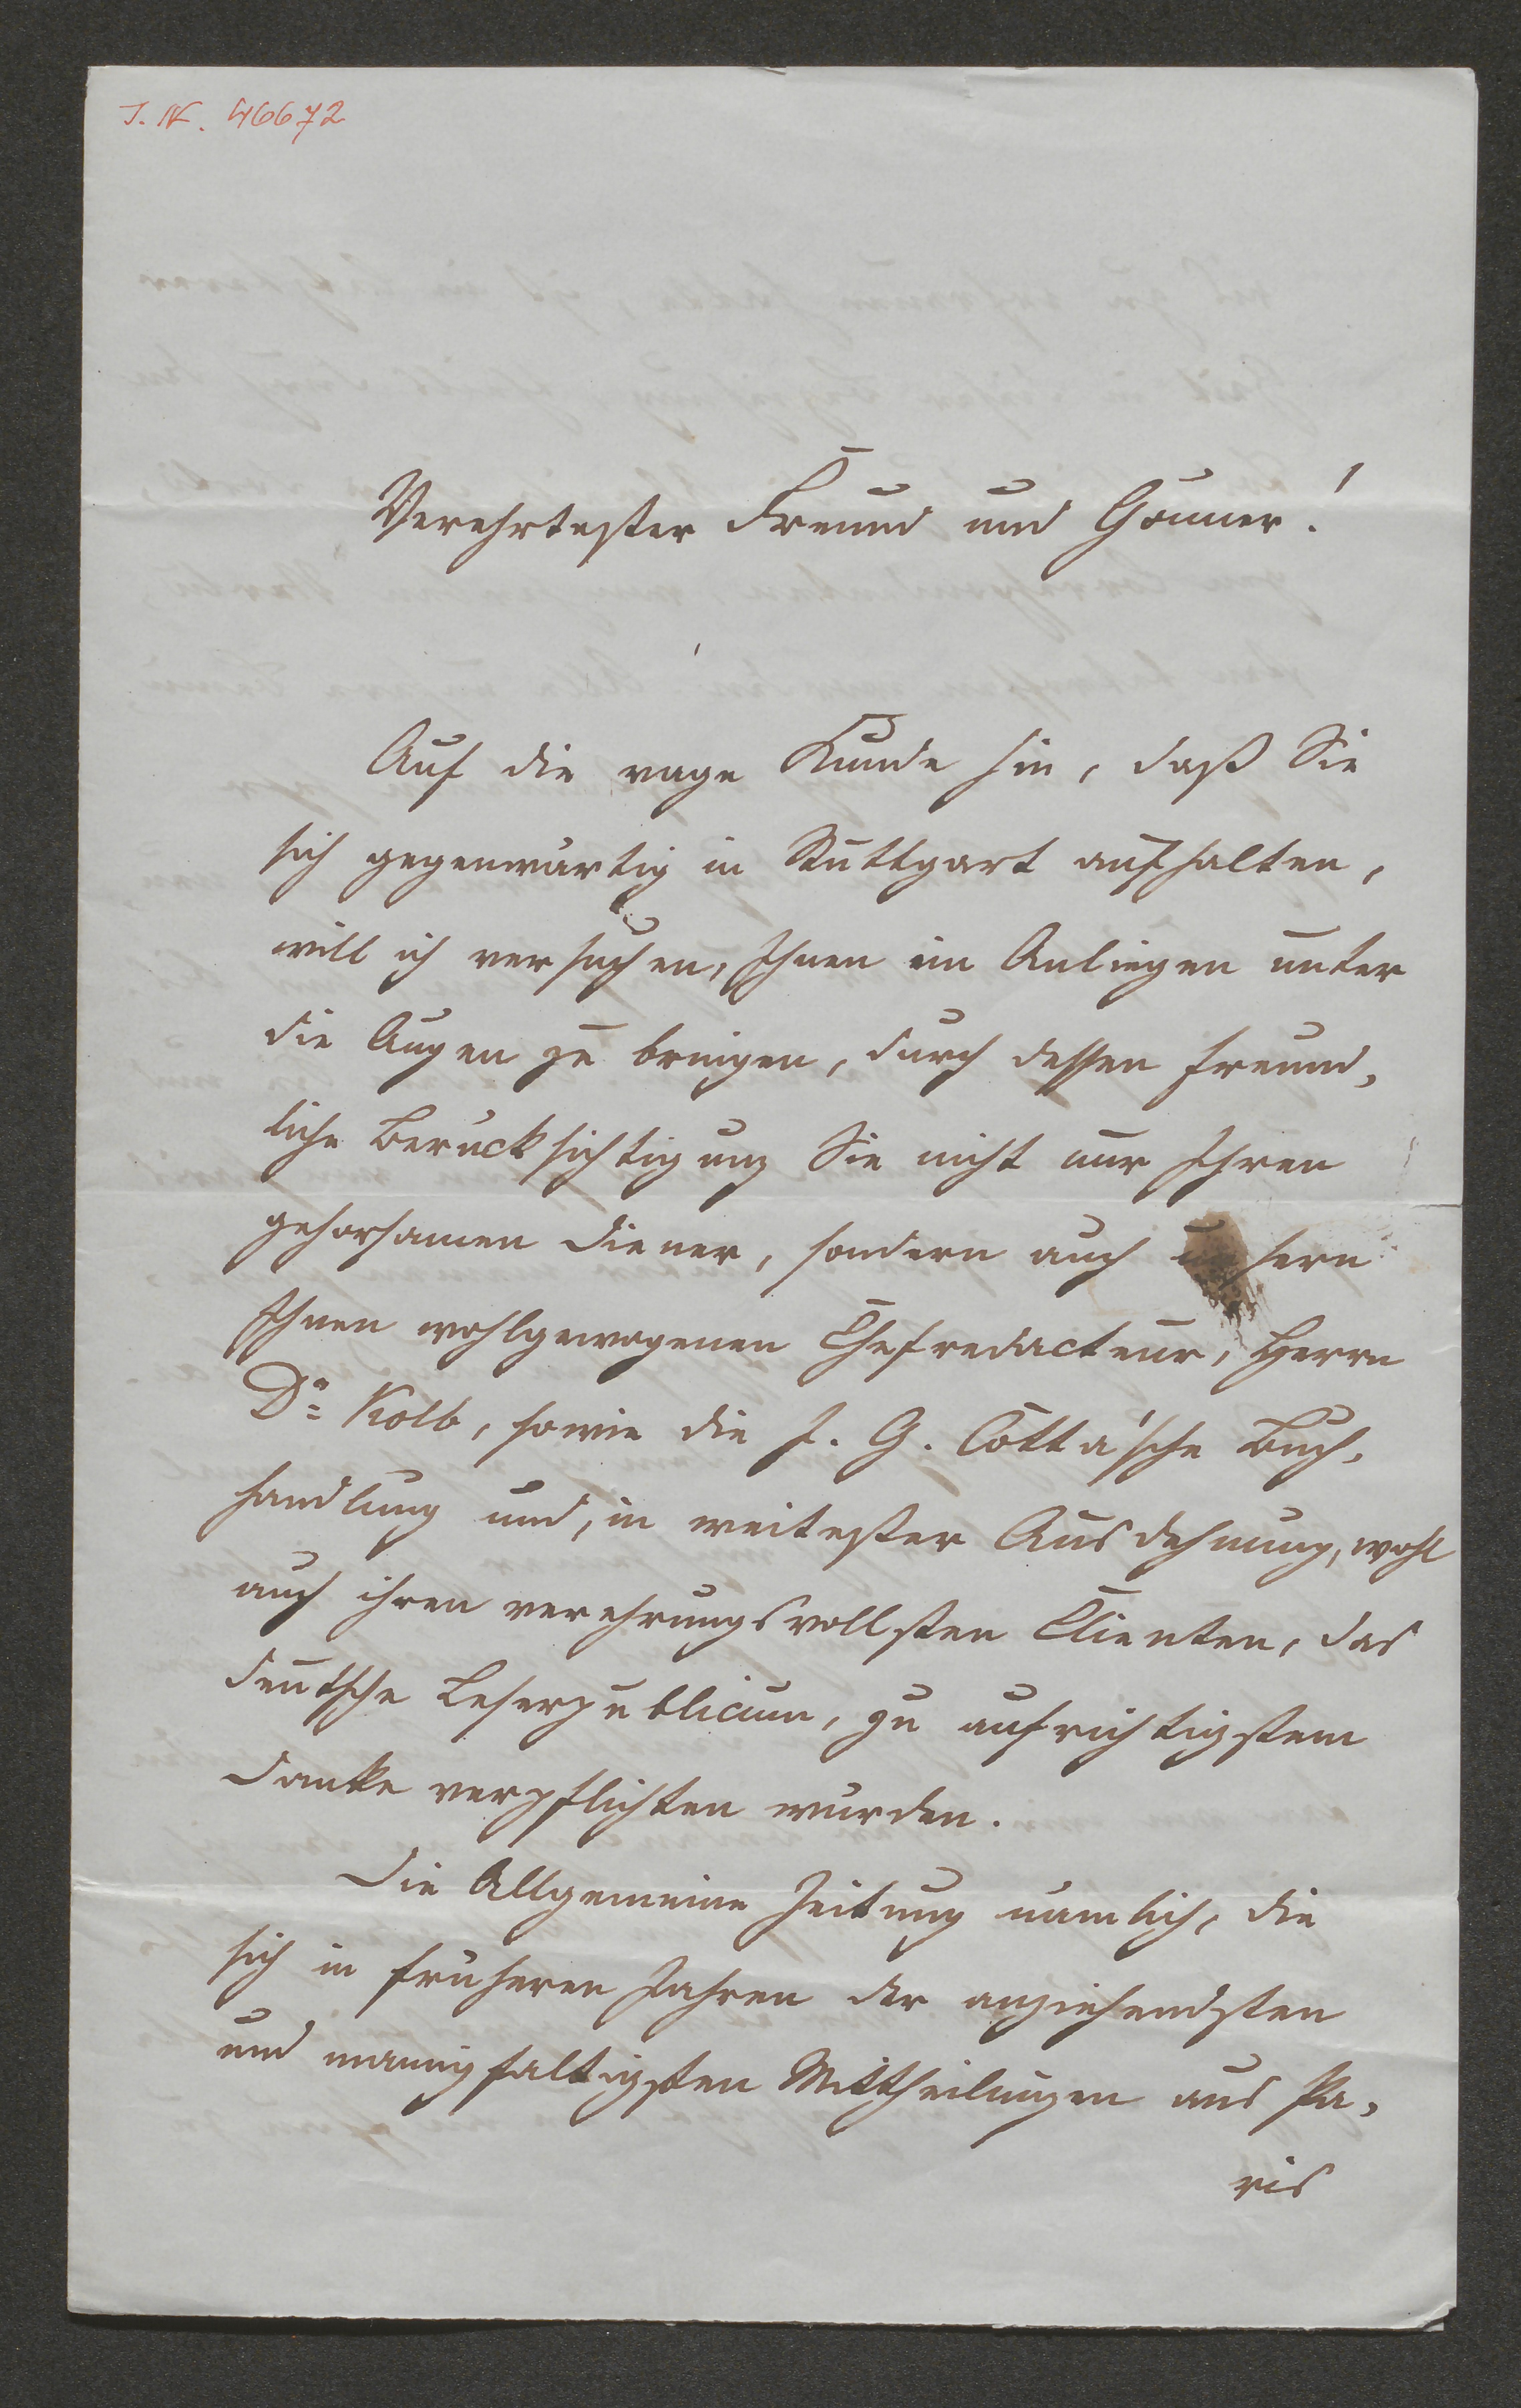 J. N. 46672
Verehrtester Freund und Gönner!
Auf die vage Kunde hin, daß Sie
sich gegenwärtig in Stuttgart aufhalten,
will ich versuchen, Ihnen ein Anliegen unter
die Augen zu bringen, durch dessen freund-
liche Berücksichtigung Sie nicht nur Ihren
gehorsamen Diener, sondern auch unsern
Ihnen wohlgewogenen Chefredacteur, Herrn
Dr Kolb, sowie die J. G. Cotta'sche Buch-
handlung und, in weitester Ausdehnung, wohl
auch ihren verehrungsvollsten Clienten, das
deutsche Leserpublicum, zu aufrichtigstem
Danke verpflichten würden.
Die Allgemeine Zeitung nämlich, die
sich in früheren Jahren der anziehendsten
und mannigfaltigsten Mittheilungen aus Pa-
ris